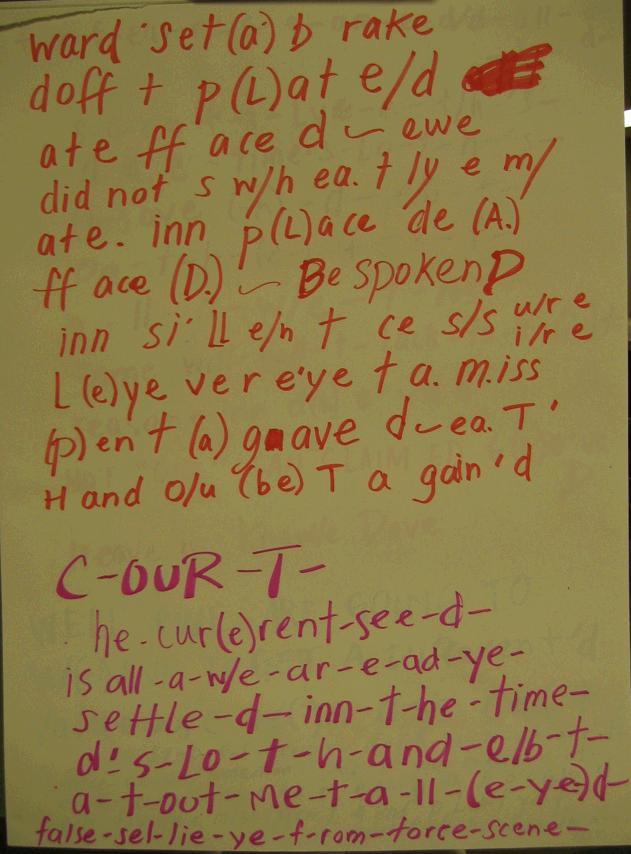 ward set(a) b rake
doff t p(L)at e/d
ate ff ace d ~ ewe
did not s w/h ea. t ly e m/
ate. inn p(L)ace de (A.)
ff ace (D.) ~ BespokenD
inn si' ll e/n t ce s/s u/r e i/r e
L(e)ye ver e'ye t a. m.iss
(p)en t (a) gave d~ea. T'
H and o/u (be) T a gain'd
C-OUR-T-
he-cur(e)rent-see-d-
is all-a-w/e-ar-e-ad-ye-
settle-d-inn-t-he-time-
d's-Lo-t-h-and-e/b-t-
a-t-out-Me-t-a-ll-(e-ye)d-
false-sel-lie-ye-f-rom-force-scene-